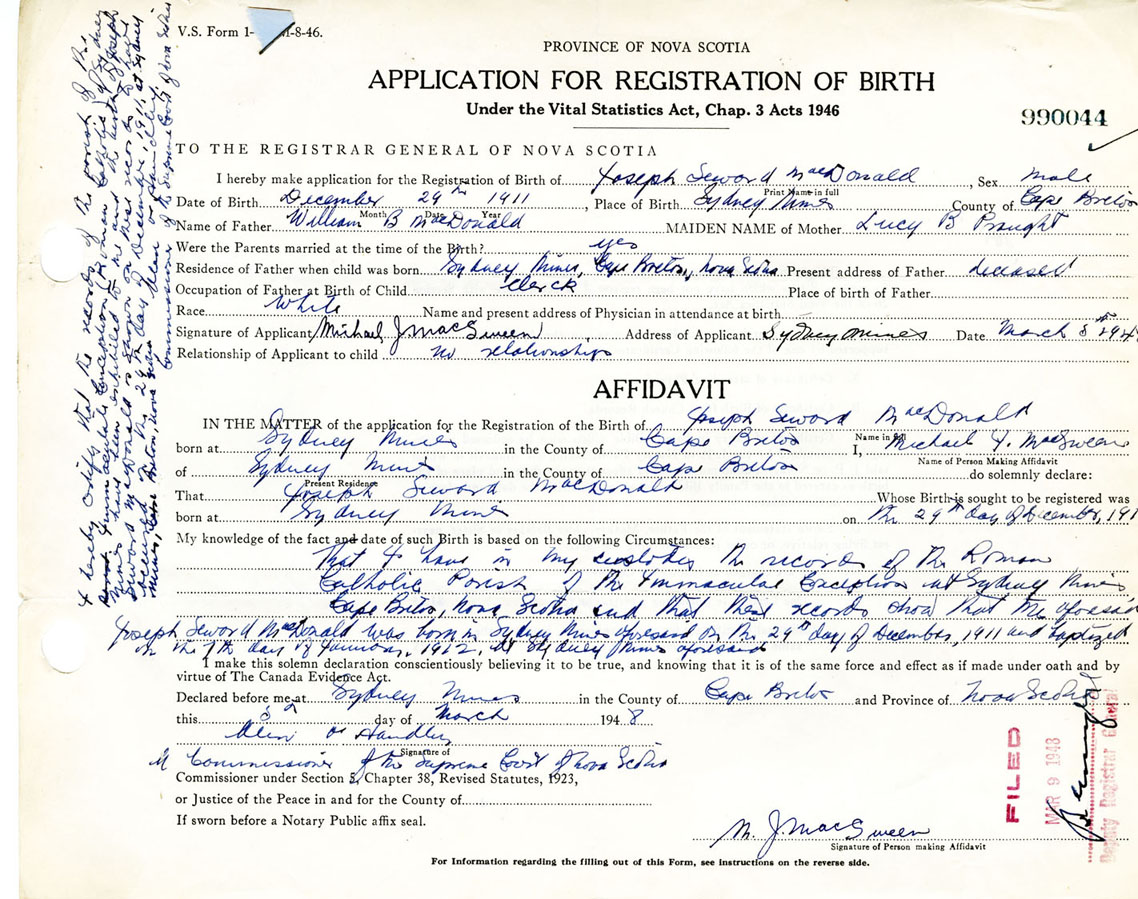 V.S. Form 1- M-8-46.
PROVINCE OF NOVA SCOTIA
APPLICATION FOR REGISTRATION OF BIRTH
Under the Vital Statistics Act, Chap. 3 Acts 1946
990044
TO THE REGISTRAR GENERAL OF NOVA SCOTIA
I hereby make application for the Registration of Birth of Joseph Seward MacDonald, Sex male
Print Name in full
Date of Birth December 29th 1911, Place of Birth Sydney Mines County of Cape Breton
Month Date Year
Name of Father William B MacDonald MAIDEN NAME of Mother Lucy B Praught
Were the Parents married at the time of the Birth? yes
Residence of Father when child was born Sydney Mines, Cape Breton, Nova Scotia Present address of Father deceased
Occupation of Father at Birth of Child clerck Place of birth of Father
Race White Name and present address of Physician in attendance at birth
Signature of Applicant Michael J. MacSween Address of Applicant Sydney Mines Date March 8th 194
Relationship of Applicant to child no relationship
AFFIDAVIT
IN THE MATTER of the application for the Registration of the Birth of Joseph Seward MacDonald
Name in full
born at Sydney Mines in the County of Cape Breton I, Michael J. MacSween
Name of Person Making Affidavit
of Sydney Mines in the County of Cape Breton do solemnly declare:
Present Residence
That Joseph Seward MacDonald Whose Birth is sought to be registered was
born at Sydney Mines on the 29th day of December, 191
My knowledge of the fact and date of such Birth is based on the following Circumstances:
That I have in my custody the records of the Roman
Catholic Parish of the Immaculate Conception at Sydney Mines
Cape Breton, Nova Scotia and that these records show that the aforesaid
Joseph Seward MacDonald was born in Sydney Mines aforesaid on the 29th day of December, 1911 and baptized
on the 7th day of January, 1912, at Sydney Mines aforesaid
I make this solemn declaration conscientiously believing it to be true, and knowing that it is of the same force and effect as if made under oath and by
virtue of The Canada Evidence Act.
Declared before me at Sydney Mines in the County of Cape Breton and Province of Nova Scotia
this day of March 1948
Signature of
A Commissioner of the Supreme Court of Nova Scotia
Commissioner under Section 5, Chapter 38, Revised Statutes, 1923,
or Justice of the Peace in and for the County of
If sworn before a Notary Public affix seal.
M. J. MacSween
Signature of Person making Affidavit
For Information regarding the filling out of this Form, see instructions on the reverse side.
FILED
MAR 9 1948
Deputy Registrar General
I hereby certify that the records of the parish of the
Immaculate Conception (Roman Catholic) of Sydney
Mines have been exhibited to me and the birth of Joseph
Seward MacDonald is shown on these records to have
occurred on the 29th day of December 1911 at Sydney
Mines, Cape Breton, Nova Scotia
Commissioner of the Supreme Court of Nova Scotia